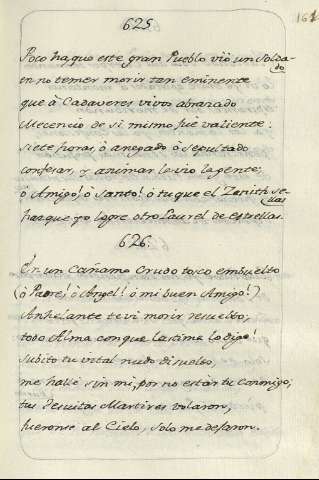 161
625
Poco ha que este gran Pueblo vió un Soldado
en no temer morir tan eminente
que à Cadaveres vivos abrazado
Mecencio de si mismo fué valiente:
siete horas, ò anegado ò sepultado
confesar, y animar le vio la gente;
ò Amigo! ò Santo! ò tu que el Zenith sellas
haz que yo logre otro Laurel de estrellas.
626.
En un Cañamo Crudo tosco embuelto
(ò Padre! ò Angel! ò mi buen Amigo!)
Anhelante te vi morir resuelto,
todo Alma con que lastima lo digo!
Subito tu vital nudo disuelto,
me hallé sin mi, por no estar tu Conmigo;
tus Jesuitas Martires volaron,
fueronse al Cielo, solo me dejaron.